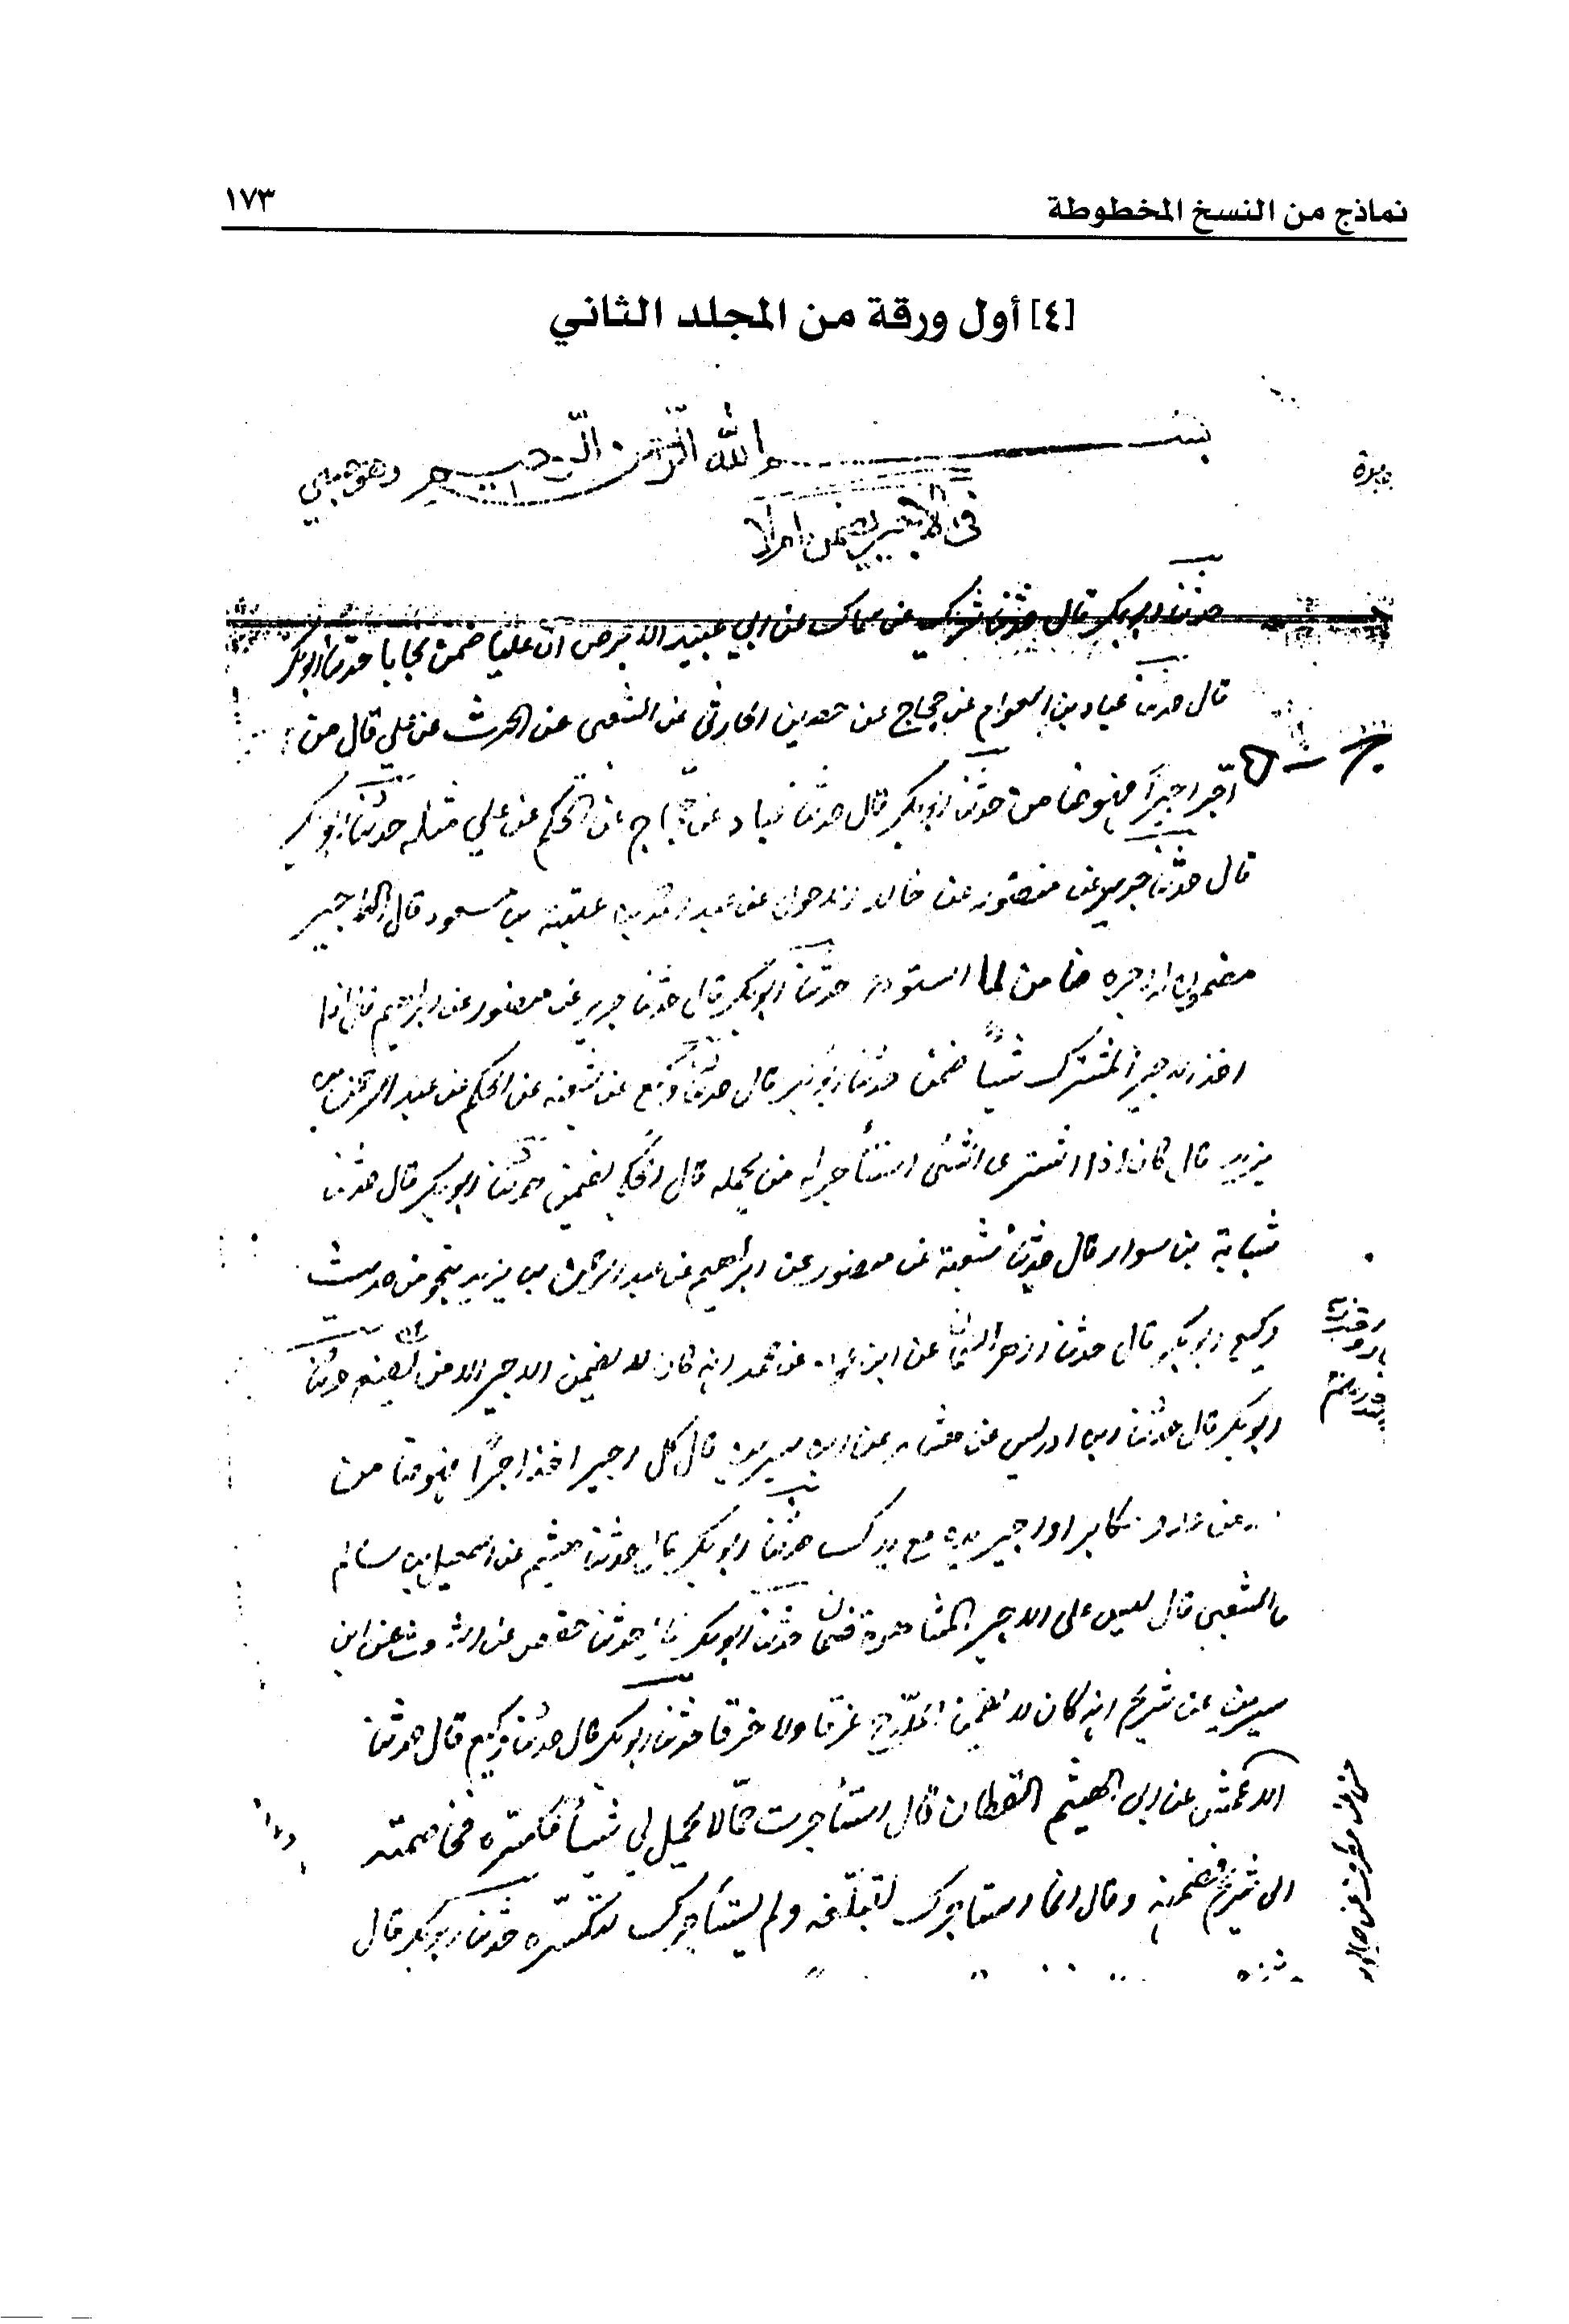 نماذج من النسخ المخطوطة ١٧٣
[٤] أول ورقة من المجلد الثاني
بسم الله الرحمن الرحيم وهو حسبي
في الاجير يضمن ام لا
حدثنا ابو بكر قال حدثنا شريك عن سماك عن ابي عبيد الابرص ان عليا ضمن نجارا حدثنا ابو بكر
قال حدثنا عباد بن العوام عن حجاج عن حصين الحارثي عن الشعبي عن الحرث عن علي قال من
اجر اجيرا فهو ضامن حدثنا ابو بكر قال حدثنا عباد عن حجاج عن الحكم عن علي مثله حدثنا ابو بكر
قال حدثنا جرير عن منصور عن خالد عن عبد الله بن عتبة بن مسعود قال الاجير
مضمون له اجره ضامن لما استودع حدثنا ابو بكر قال حدثنا جرير عن منصور عن ابراهيم قال اذا
اخذ الاجير المشترك شيئا ضمن حدثنا ابو بكر قال حدثنا وكيع عن شعبة عن الحكم عن عبد الرحمن بن
يزيد قال كان اذا اشترى الشئ استأجر له من يحمله قال الحكم يضمن حدثنا ابو بكر قال حدثنا
شبابة بن سوار قال حدثنا شعبة عن منصور عن ابراهيم عن عبد الرحمن بن يزيد بنحو من حديث
وكيع ابو بكر قال حدثنا ازهر السمان عن ابن عون عن محمد انه كان لا يضمن الاجير الا من تضييع حدثنا
ابو بكر قال حدثنا ابن ادريس عن هشام عن ابن سيرين قال كل اجير اخذ اجرا فهو ضامن
الا من عدو مكابر او اجير يده مع يدك حدثنا ابو بكر قال حدثنا هشيم عن اسمعيل بن سالم
الشعبي قال ليس على الاجير المشاهرة ضمان حدثنا ابو بكر قال حدثنا حفص عن اشعث عن ابن
سيرين عن شريح انه كان لا يضمن الملاح غرقا ولا حرقا حدثنا ابو بكر قال حدثنا وكيع قال حدثنا
الاعمش عن ابي الهيثم القطان قال استأجرت حمالا يحمل لي شيئا فكسره فخاصمته
الى شريح فضمنه وقال انما استأجرك لتبلغه ولم يستأجرك لتكسره حدثنا ابو بكر قال